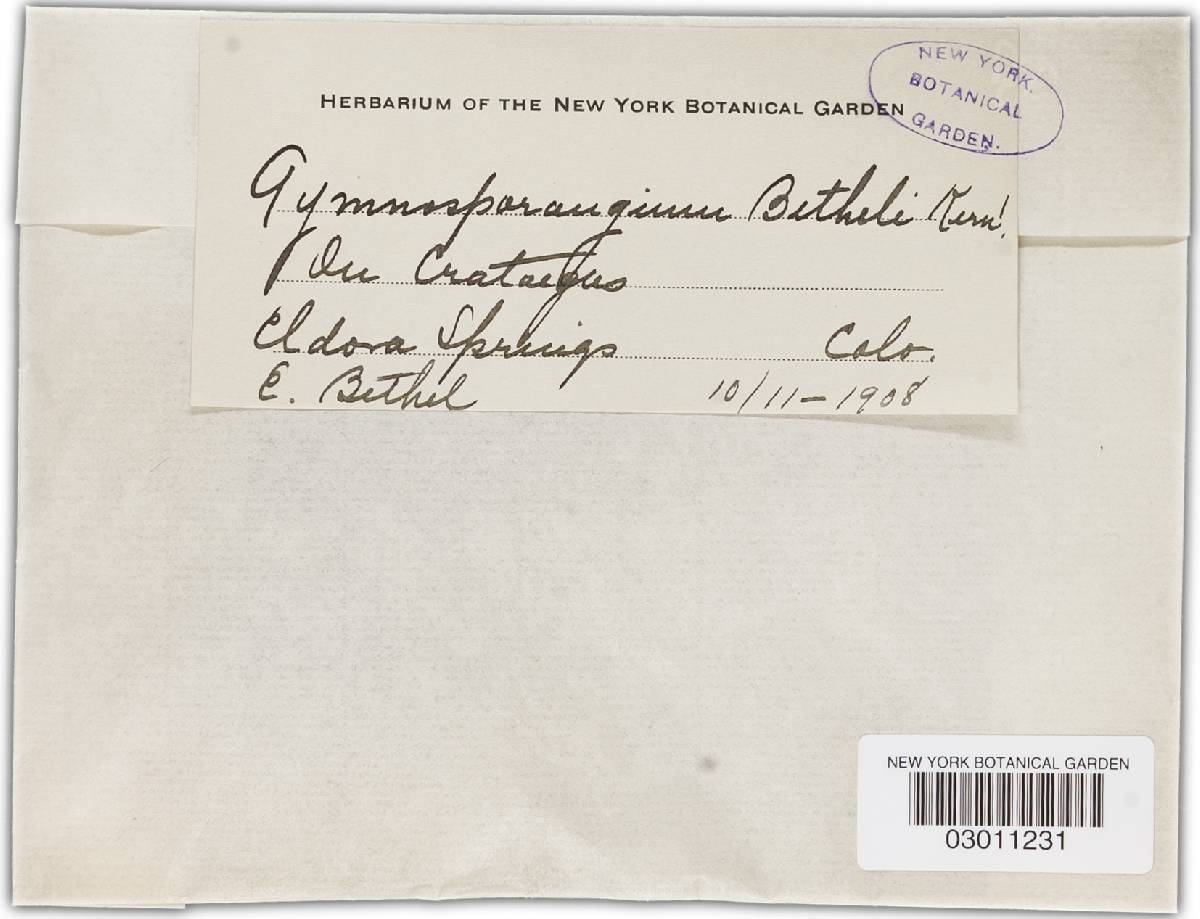 HERBARIUM OF THE NEW YORK BOTANICAL GARDEN
NEW YORK.
BOTANICAL
GARDEN.
Gymnosporangium Betheli Kern!
On Crataegus
Eldora Springs Colo.
E. Bethel 10/11-1908
NEW YORK BOTANICAL GARDEN
03011231